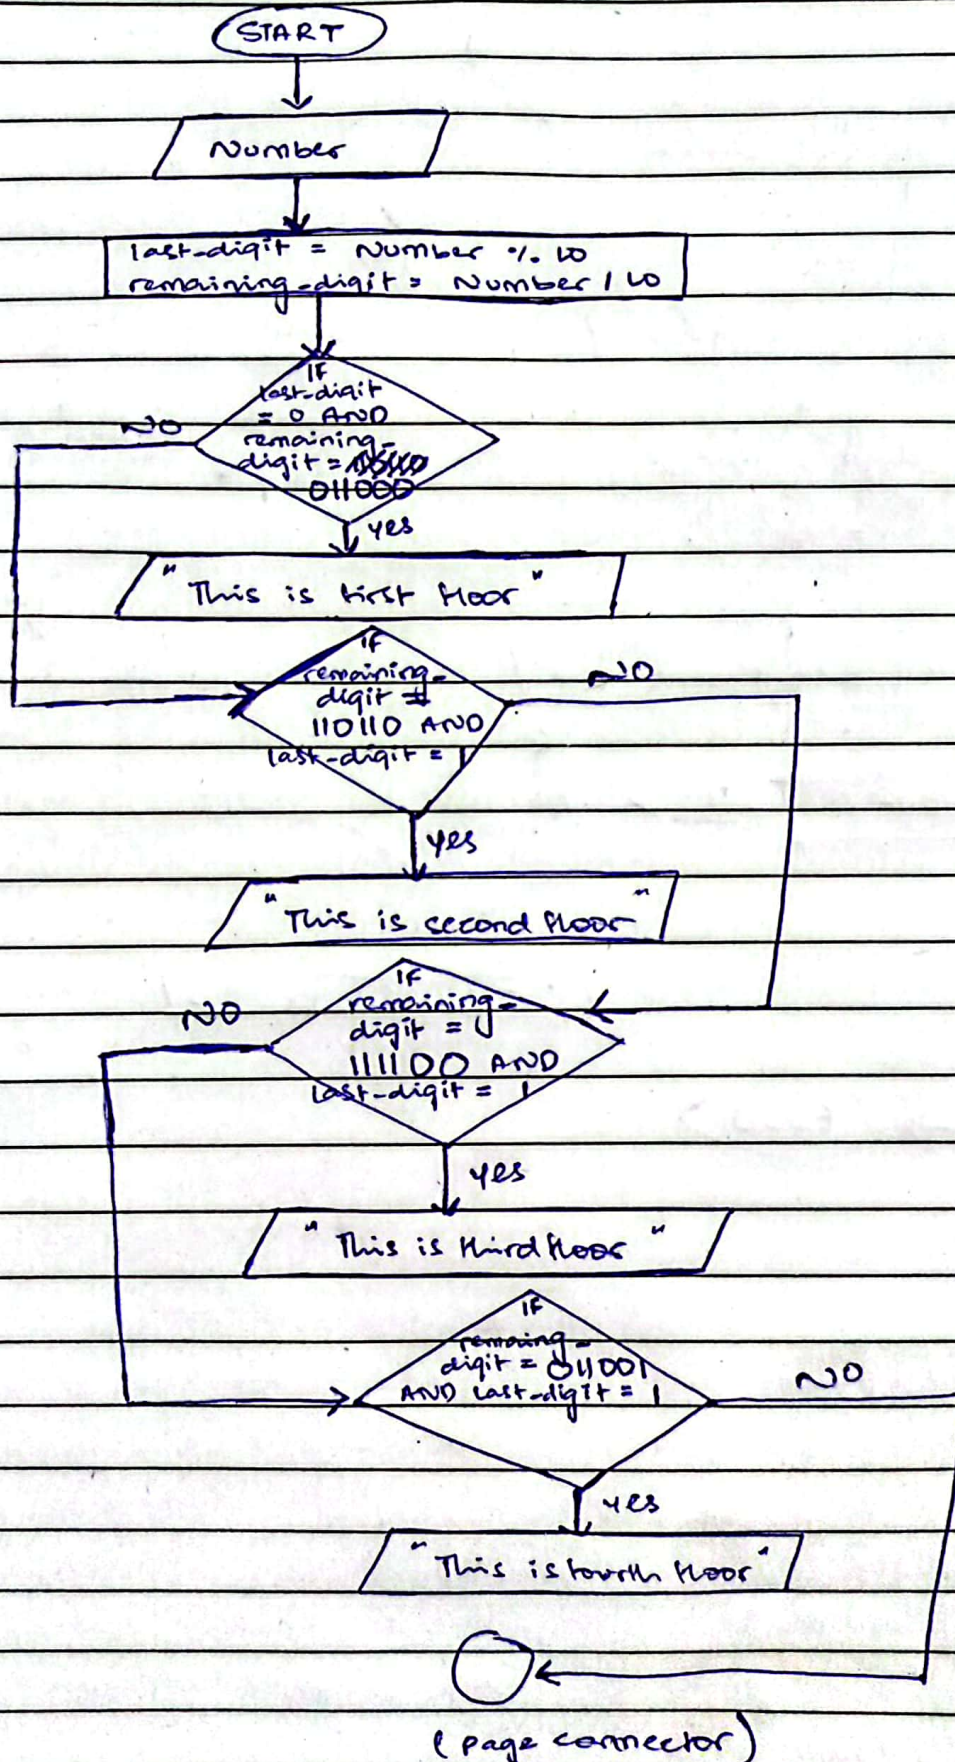 START
Number
last-digit = Number % 10
remaining-digit = Number / 10
IF
last-digit
= 0 AND
remaining-
digit =
011000
NO
yes
" This is first floor "
IF
remaining-
digit =
110110 AND
last-digit = 1
NO
yes
" This is second floor "
IF
remaining-
digit =
111100 AND
last-digit = 1
NO
yes
" This is third floor "
IF
remaing-
digit = 011001
AND last-digit = 1
NO
yes
" This is fourth floor "
(page connector)